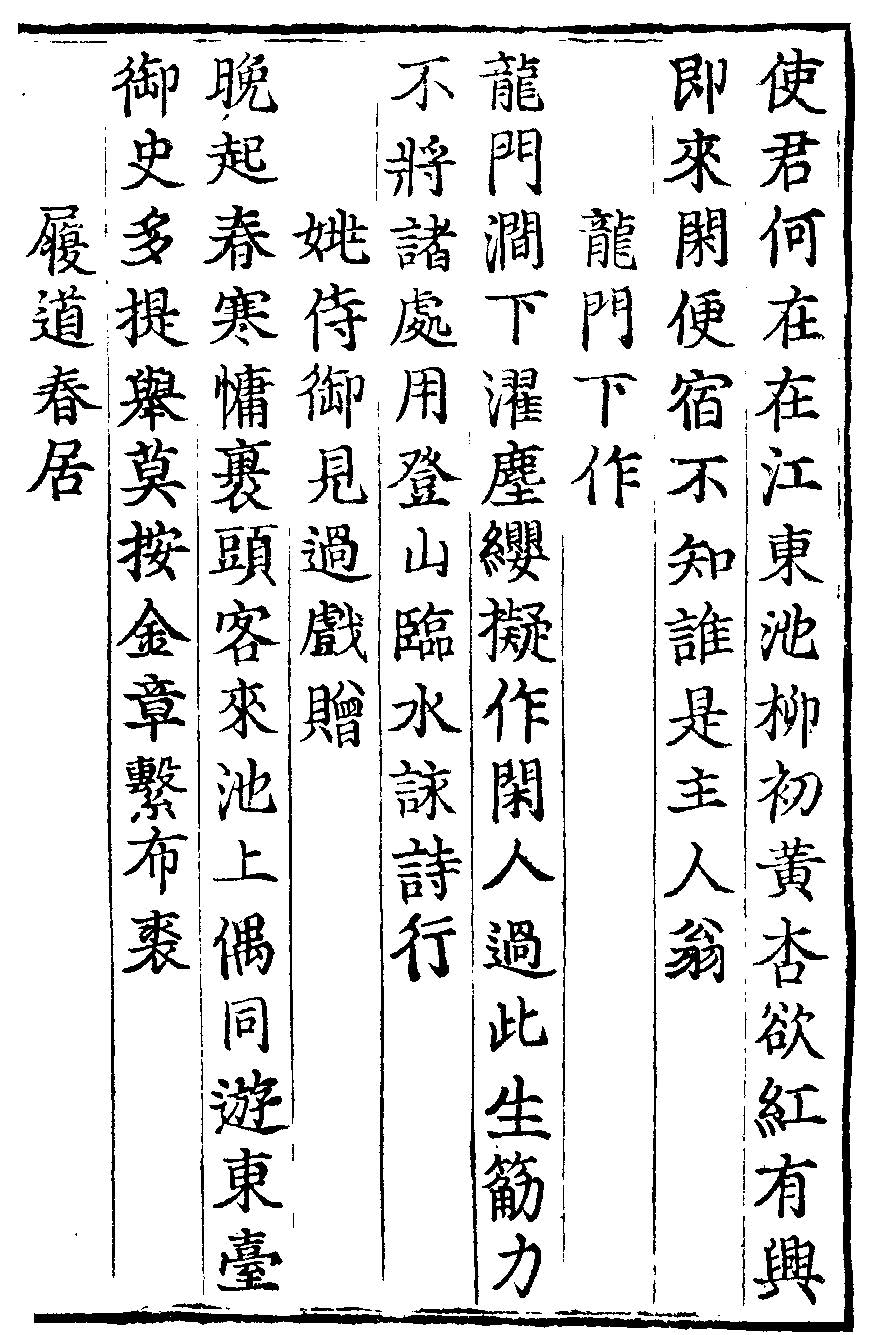 使君何在在江東池柳初黃杏欲紅有興
即來閑便宿不知誰是主人翁
龍門下作
龍門澗下濯塵纓擬作閑人過此生筋力
不將諸處用登山臨水詠詩行
姚侍御見過戲贈
晚起春寒慵裹頭客來池上偶同遊東臺
御史多提舉莫按金章繫布裘
履道春居